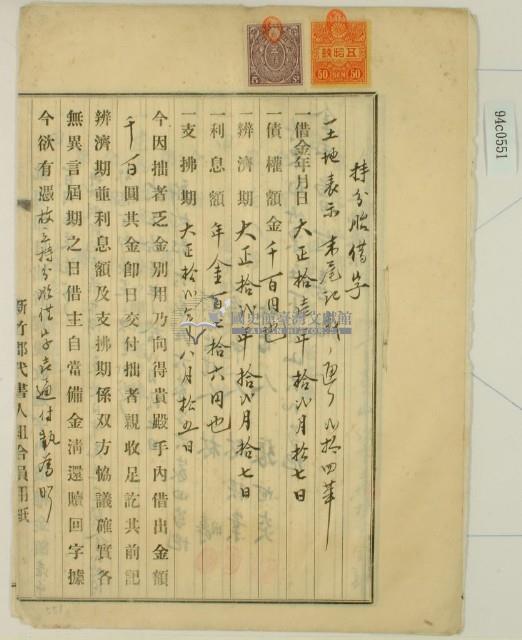 持分胎借字
一土地表示 末尾記載ノ通り 九拾四筆
一借金年月日 大正拾壹年拾貳月拾七日
一債權額金千百円也
一辨濟期 大正拾貳年拾貳月拾七日
一利息額 年金百七拾六円也
一支拂期 大正拾貳年八月拾五日
今因拙者乏金別用乃向得貴殿手內借出金額
千百圓其金卽日交付拙者親收足訖其前記
辨濟期並利息額及支拂期係双方恊議確實各
無異言屆期之日借主自當備金淸還贖回字據
今欲有憑故立持分胎借字壹通付執爲炤
新竹郡代書人組合員用紙
國史館臺灣文獻館
94c0551
5
50 SEN 50